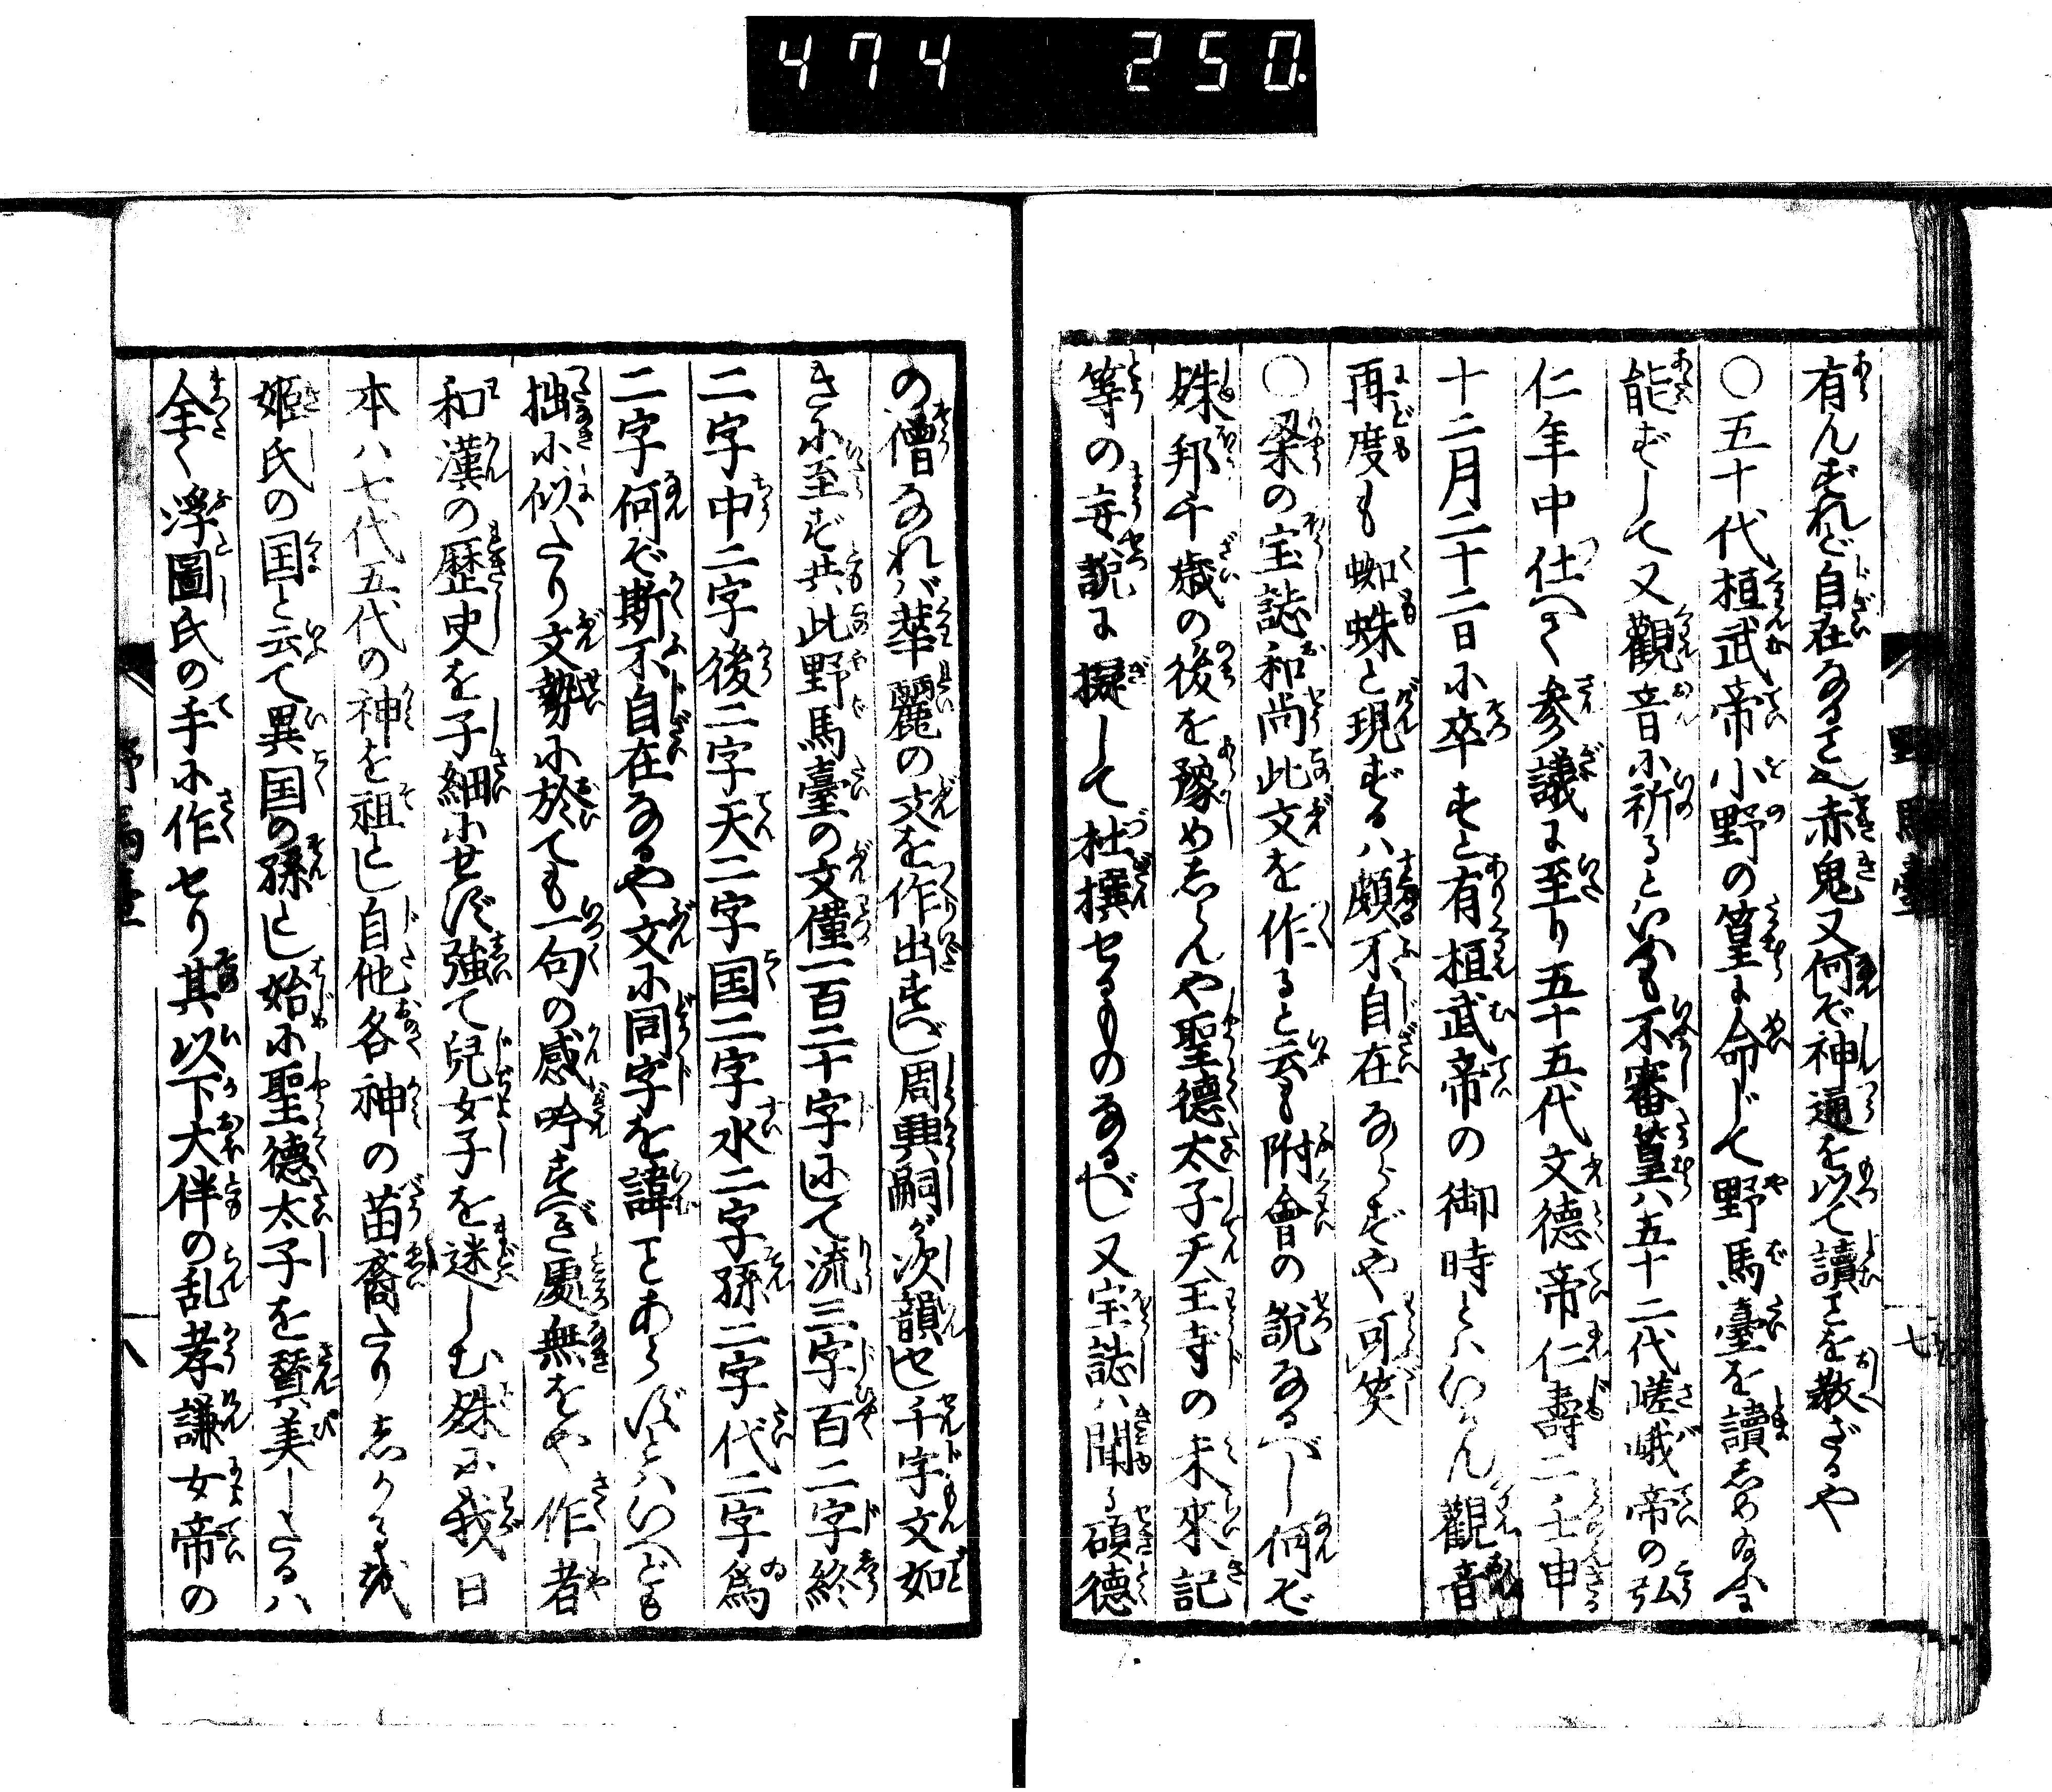 474 250.
有んずれど自在なること也赤鬼又何ぞ神通を以て讀ことを教ざるや
○五十代桓武帝小野の篁に命じて野馬臺を讀しめ給ふに
能ずして又觀音に祈るといへども不審篁ハ五十二代嵯峨帝の弘
仁年中仕へて参議に至り五十五代文徳帝仁壽二壬申
十二月二十二日に卒すと有桓武帝の御時とハいかん觀音
再度も蜘蛛と現ずるハ頗不自在ならずや可笑
○梁の宝誌和尚此文を作ると云も附會の説なるべし何ぞ
殊邦千歳の後を豫めしらんや聖徳太子天王寺の未來記
等の妄説に擬して杜撰せるものなるべし又宝誌ハ聞る碩徳
野馬臺
七
の僧なれバ華麗の文を作出すべし周興嗣が次韻せし千字文如
きに至ず共此野馬臺の文僅一百二十字にして流三字百二字終
二字中二字後二字天二字国二字水二字孫二字代二字為
二字何ぞ斯不自在なるや文に同字を諱ことあらずとハいへども
拙に似たり文勢に於ても一句の感吟すべき處無をや作者
和漢の歴史を子細にせず強て兒女子を迷しむ殊に我日
本ハ七代五代の神を祖とし自他各神の苗裔たりしかるを
姫氏の国と云て異国の孫とし始に聖徳太子を賛美したるハ
全く浮圖氏の手に作せり其以下大伴の乱孝謙女帝の
八